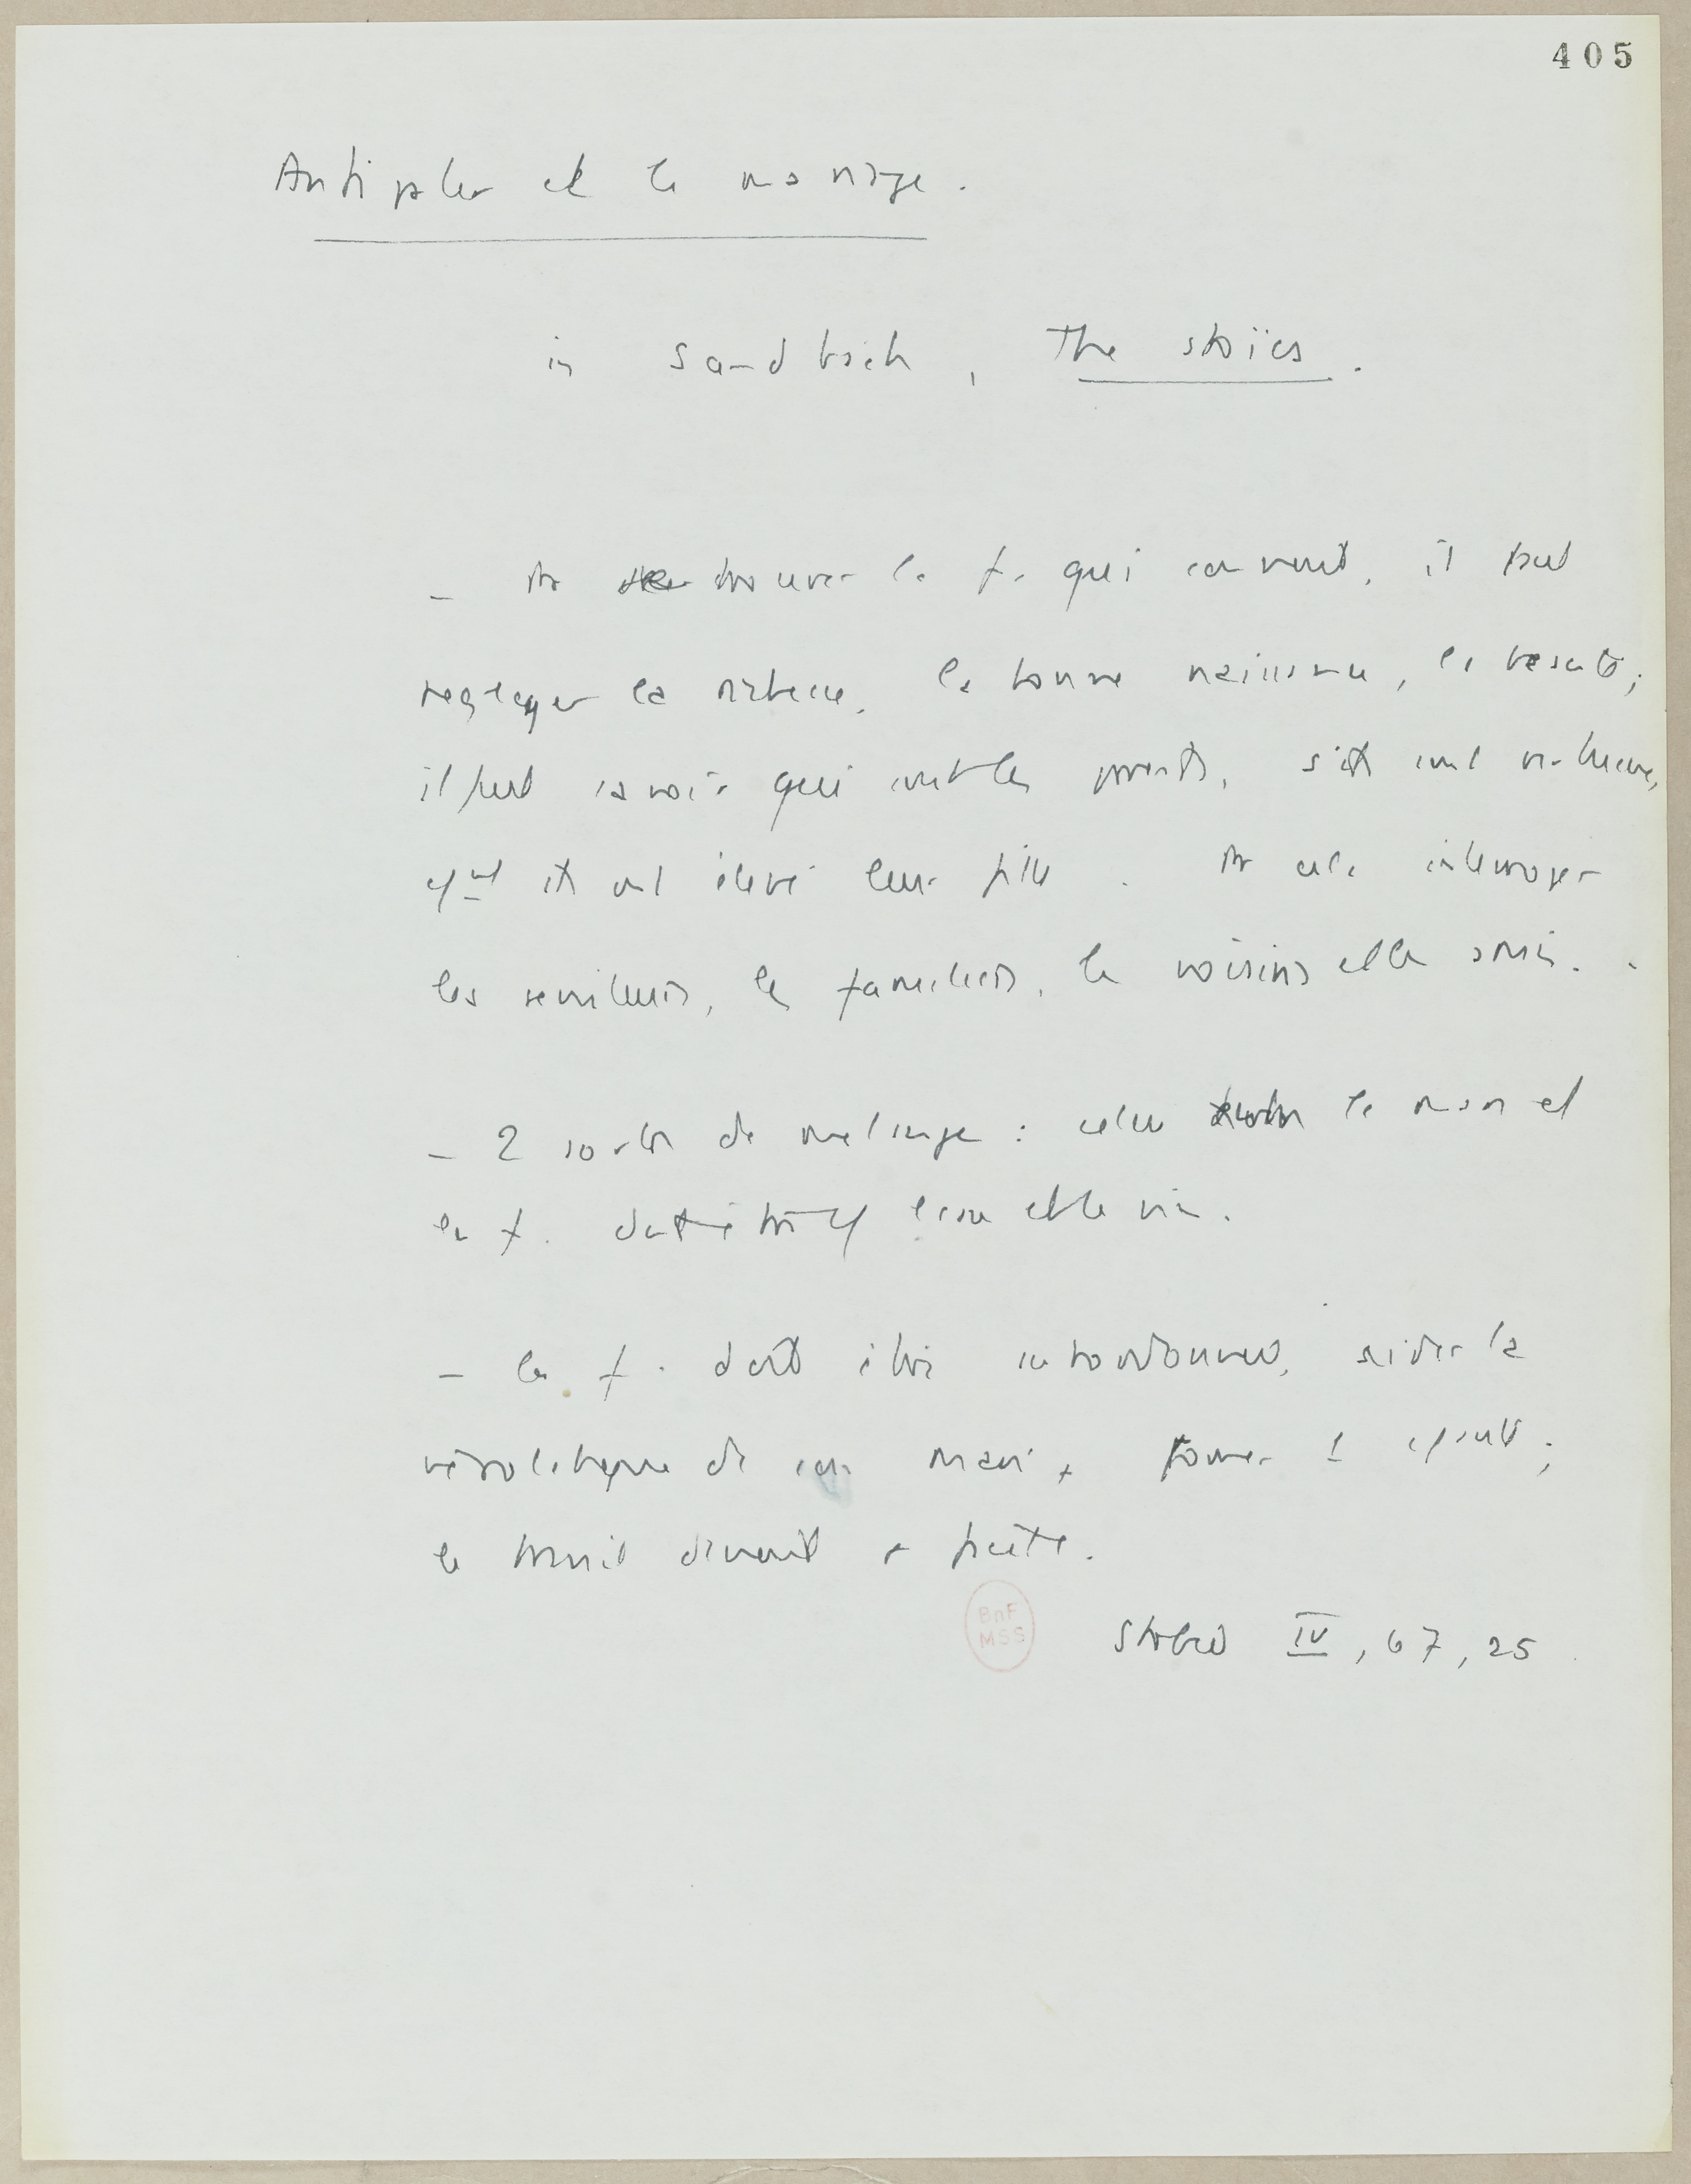 405
Antipater et le mariage.
in Sandbach, The stoics.
– Pr trouver la f. qui convient, il faut
negliger la richesse, la bonne naissance, la beauté;
il faut savoir qui sont les parents, s'ils sont vertueux,
cmt ils ont élevé leur fille. Pr cela interroger
les serviteurs, les familiers, les voisins et les amis.
– 2 sortes de mélange : celui le mari et
la f. doit être cf l'eau et le vin.
– la f. doit être subordonnée, aider la
de son mari, former 1 ;
le travail devient +
Stobée IV, 67, 25
BnF
MSS